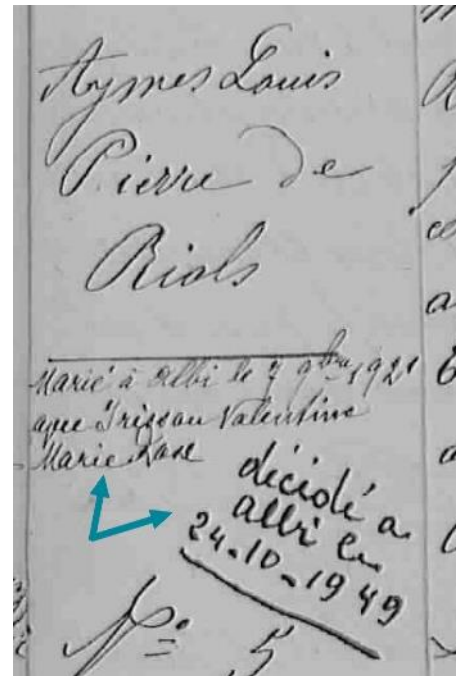 Aymes Louis
Pierre de
Riols
Marié à Albi le 7 9bre 1921
avec Valentine
Marie
décédé a
albi le
24-10-1949
N° 5